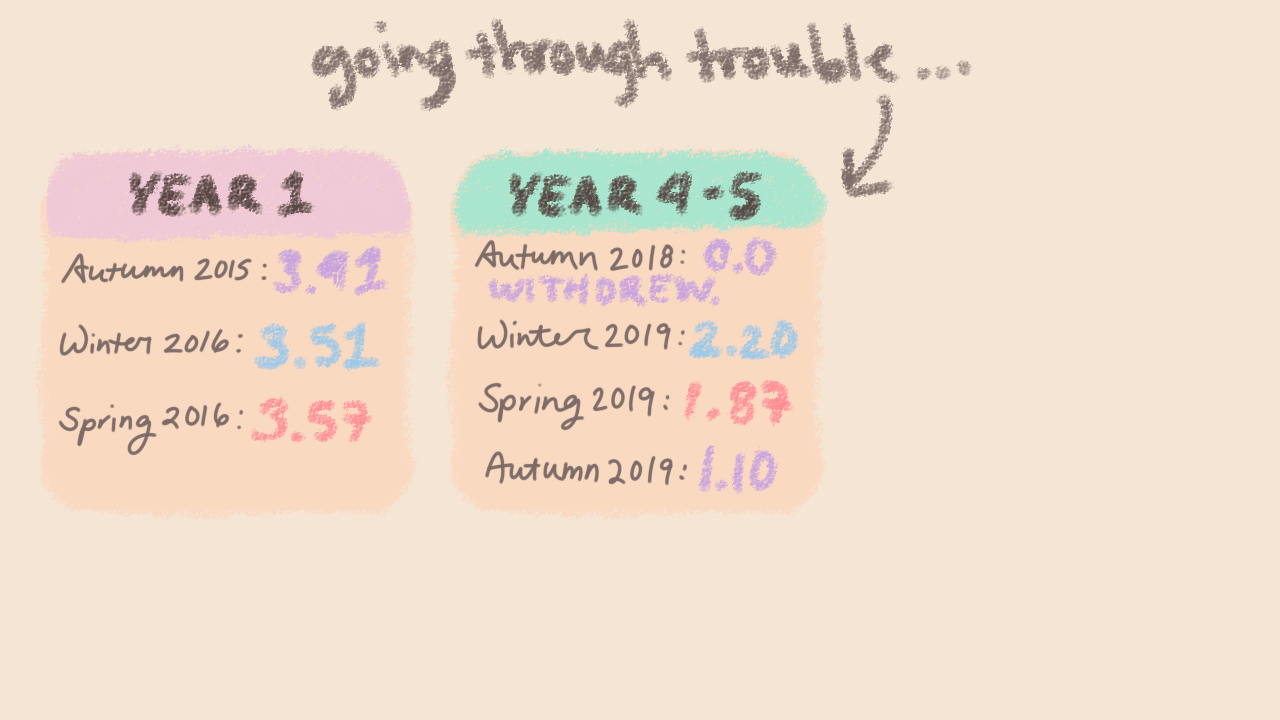 going through trouble...
YEAR 1
Autumn 2015: 3.91
Winter 2016: 3.51
Spring 2016: 3.57
YEAR 4-5
Autumn 2018: 0.0
WITHDREW.
Winter 2019: 2.20
Spring 2019: 1.87
Autumn 2019: 1.10